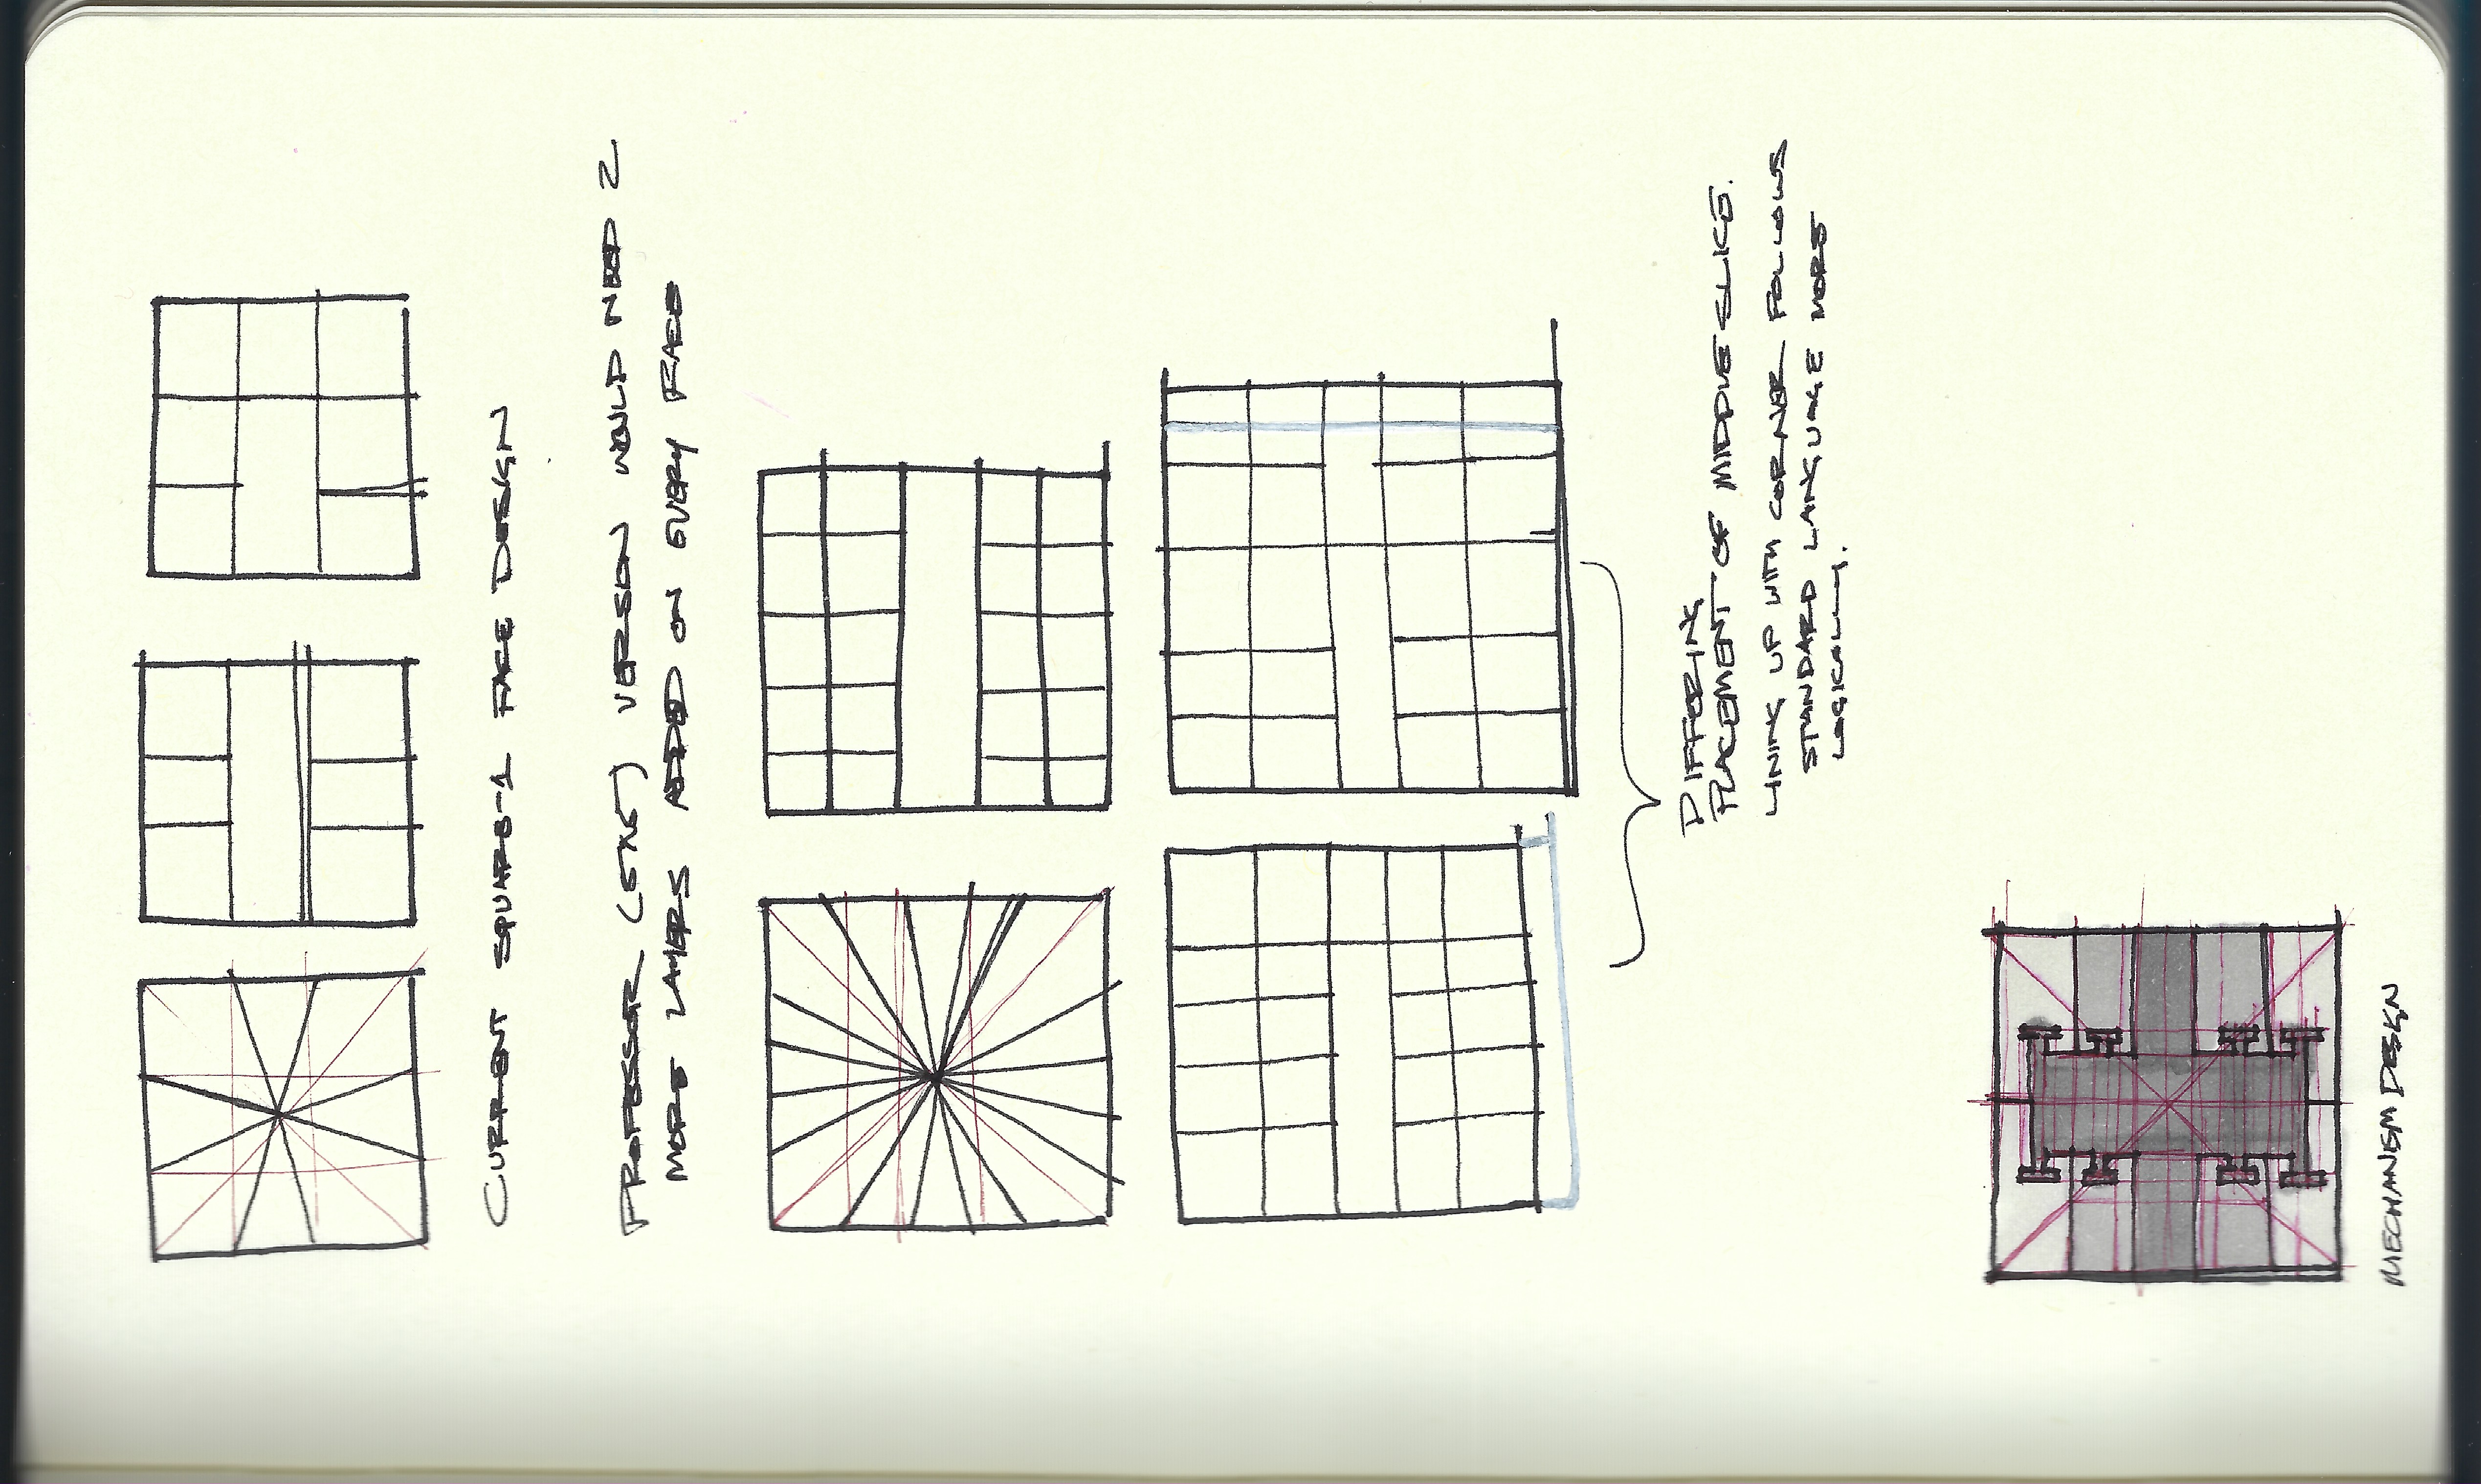 CURRENT SQUARE-1 FACE DESIGN
PROFESSOR (5X5) VERSION WOULD NEED 2
MORE LAYERS ADDED ON EVERY FACE
DIFFERING
PLACEMENT OF MIDDLE SLICE.
LINING UP WITH CORNER FOLLOWS
STANDARD LANGUAGE MORE
LOGICALLY.
MECHANISM DESIGN